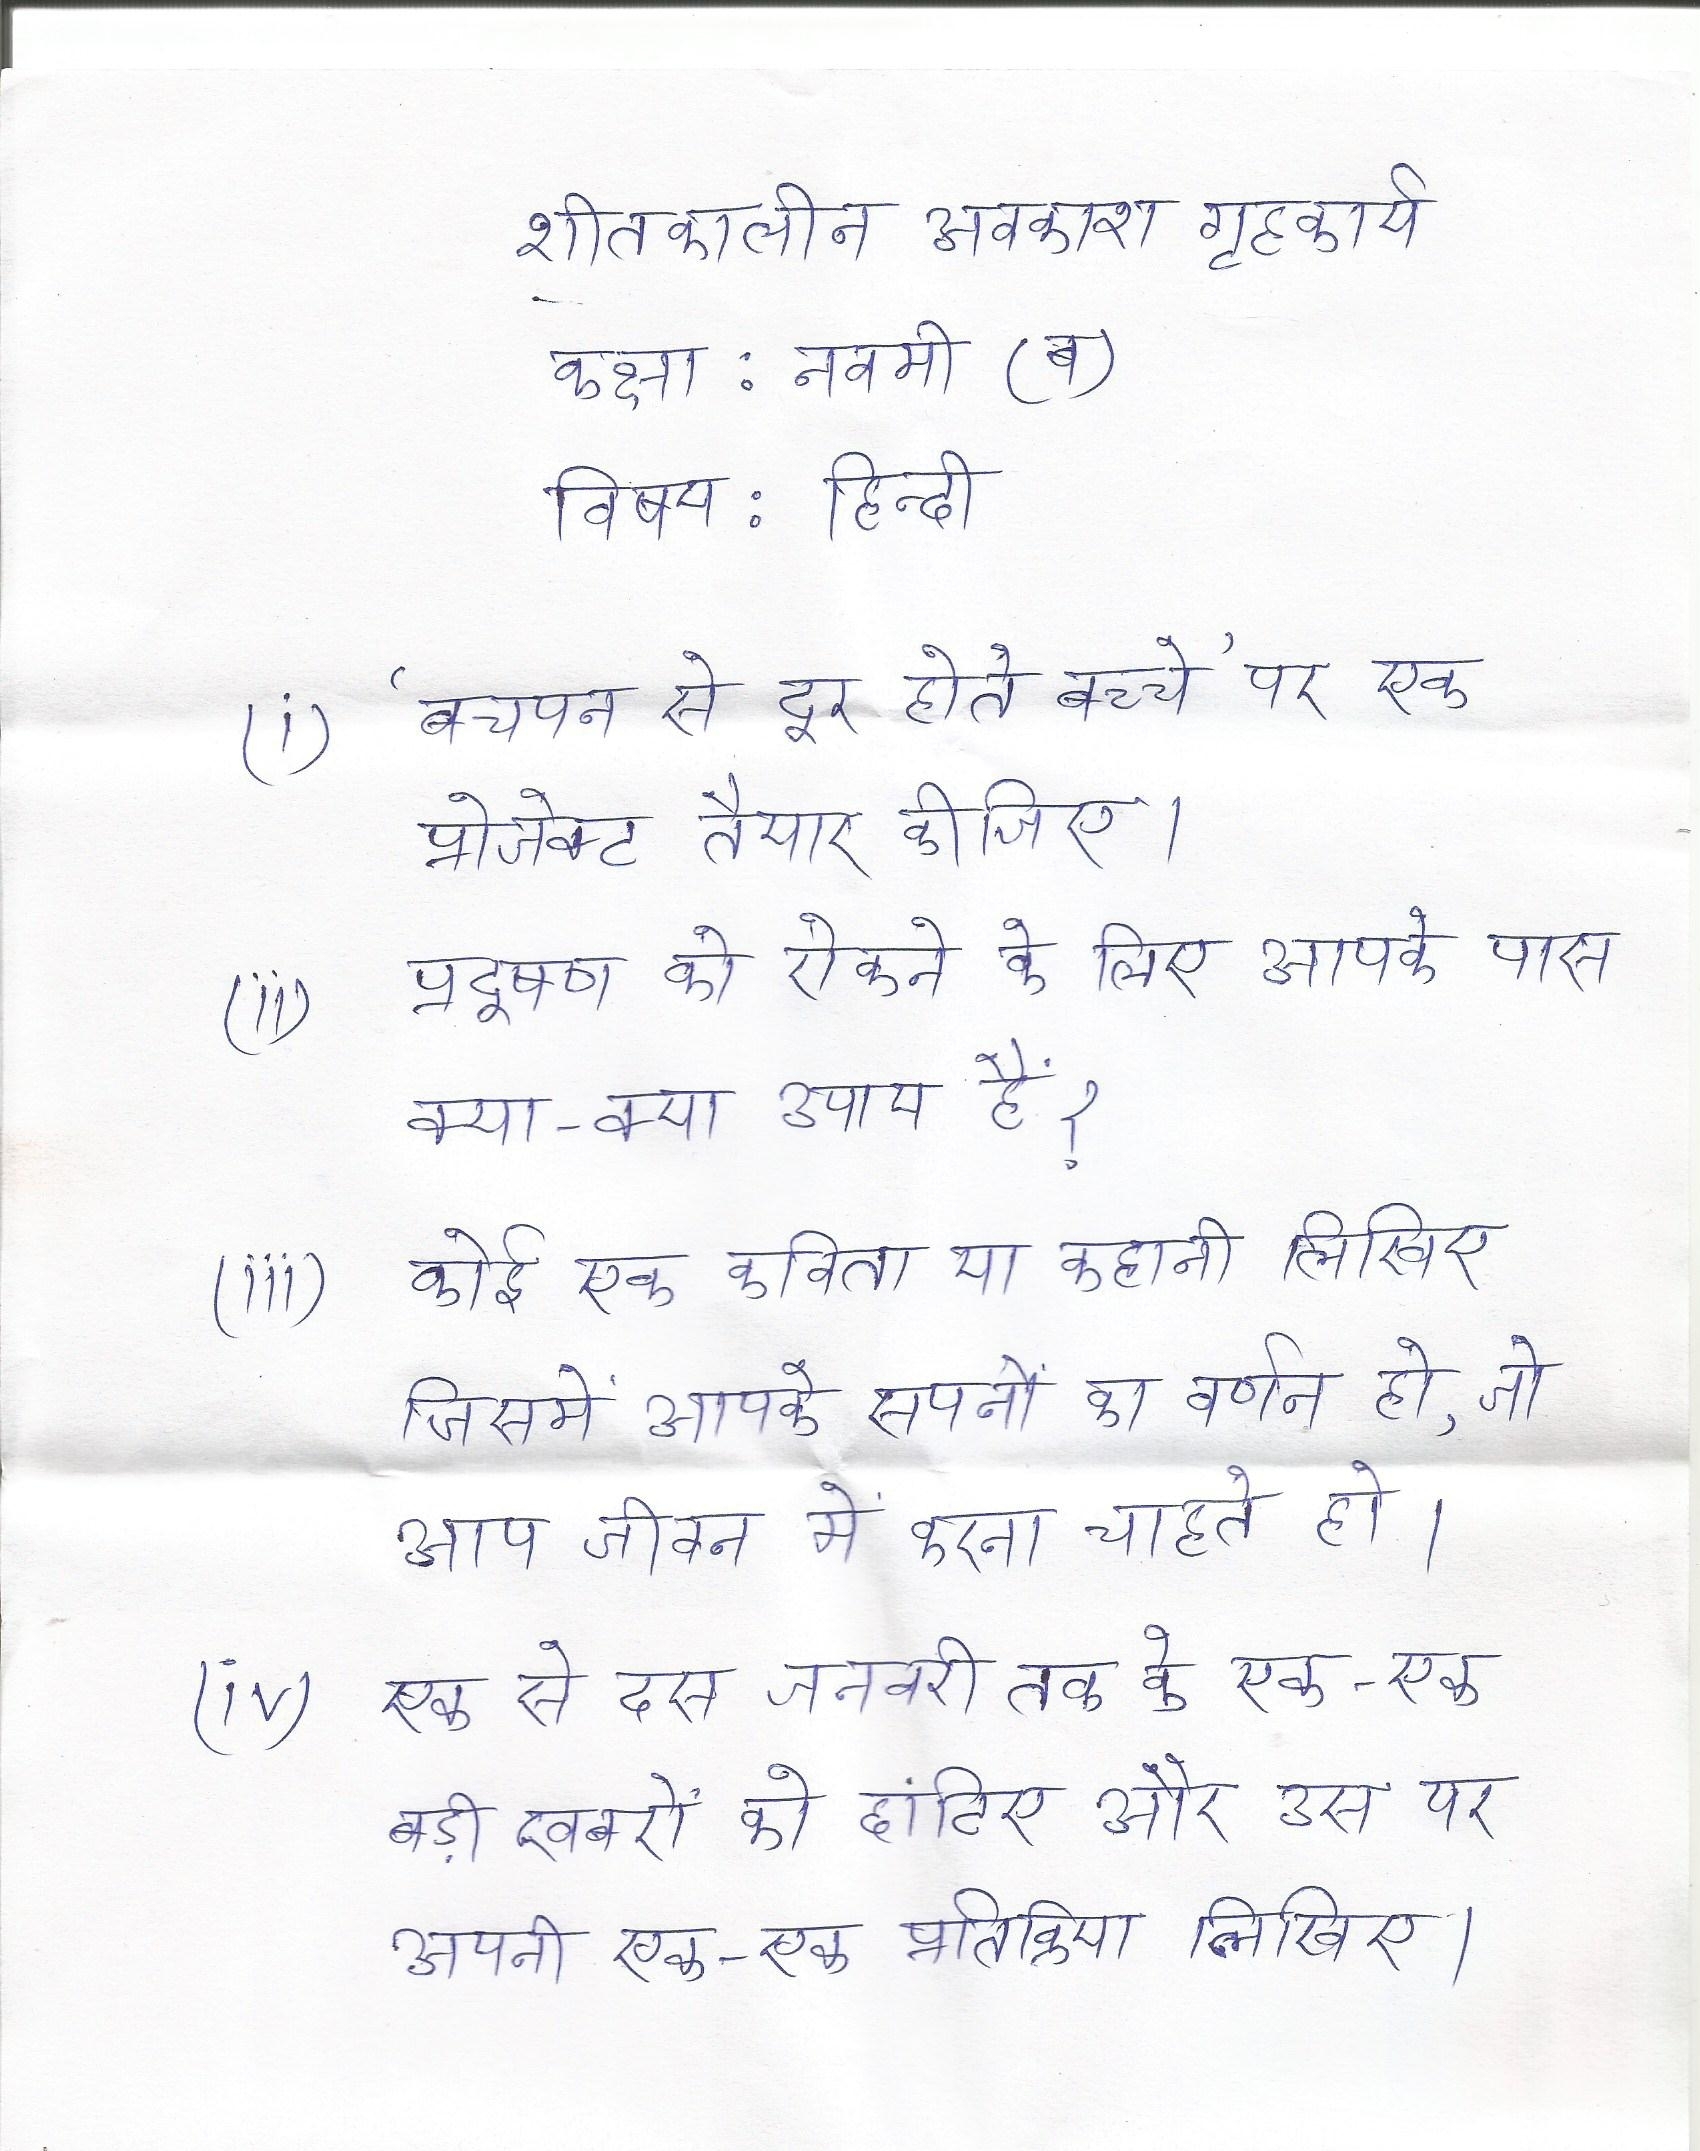 शीतकालीन अवकाश गृहकार्य
कक्षा : नवमी (ब)
विषय : हिन्दी
(i) 'बचपन से दूर होते बच्चे' पर एक
प्रोजेक्ट तैयार कीजिए।
(ii) प्रदूषण को रोकने के लिए आपके पास
क्या-क्या उपाय हैं?
(iii) कोई एक कविता या कहानी लिखिए
जिसमें आपके सपनों का वर्णन हो, जो
आप जीवन में करना चाहते हो।
(iv) एक से दस जनवरी तक के एक-एक
बड़ी खबरों को छांटिए और उस पर
अपनी एक-एक प्रतिक्रिया लिखिए।